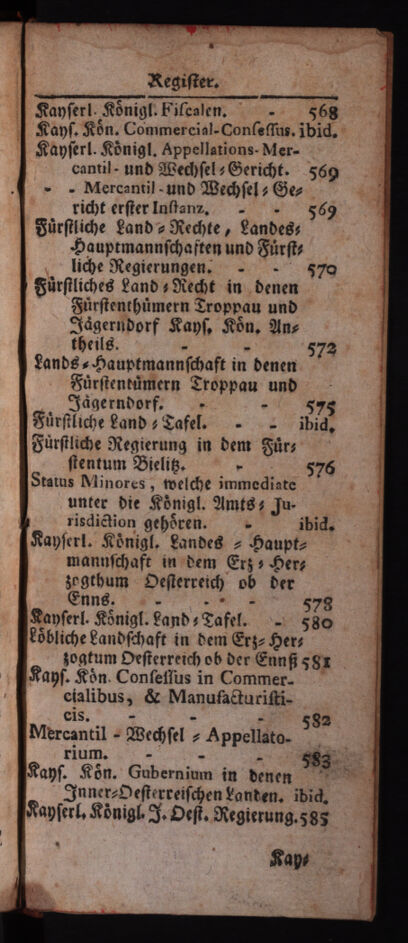 Register.
Kayserl. Königl. Fiscalen. - 568
Kays. Kön. Commercial-Consessus. ibid.
Kayserl. Königl. Appellations-Mer-
cantil- und Wechsel-Gericht. 569
- - Mercantil- und Wechsel-Ge-
richt erster Instanz. - - 569
Fürstliche Land-Rechte, Landes-
Hauptmannschaften und Fürst-
liche Regierungen. - - 570
Fürstliches Land-Recht in denen
Fürstenthümern Troppau und
Jägerndorf Kays. Kön. An-
theils. - - 572
Lands-Hauptmannschaft in denen
Fürstentümern Troppau und
Jägerndorf. - - 575
Fürstliche Land-Tafel. - - ibid.
Fürstliche Regierung in dem Für-
stentum Bielitz. - 576
Status Minores, welche immediate
unter die Königl. Amts-Ju-
risdiction gehören. - ibid.
Kayserl. Königl. Landes-Haupt-
mannschaft in dem Erz-Her-
zogthum Oesterreich ob der
Enns. - - - 578
Kayserl. Königl. Land-Tafel. - 580
Löbliche Landschaft in dem Erz-Her-
zogtum Oesterreich ob der Ennß 581
Kays. Kön. Consessus in Commer-
cialibus, & Manufacturisti-
cis. - - - 582
Mercantil-Wechsel-Appellato-
rium. - - - 583
Kays. Kön. Gubernium in denen
Inner-Oesterreischen Landen. ibid.
Kayserl. Königl. J. Oest. Regierung. 585
Kay-